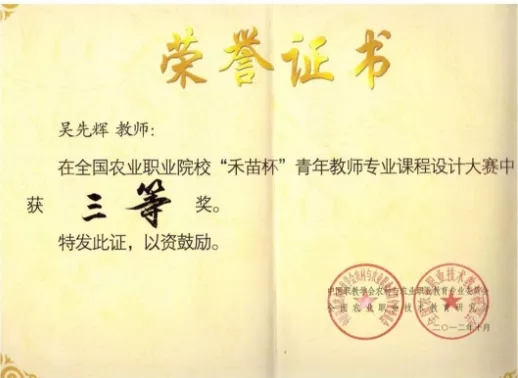 荣誉证书
吴先辉 教师:
在全国农业职业院校“禾苗杯”青年教师专业课程设计大赛中
获 三等 奖。
特发此证,以资鼓励。
中国职教学会农村与农业职业教育专业委员会
全国农业职业技术教育研究会
二〇一二年十月